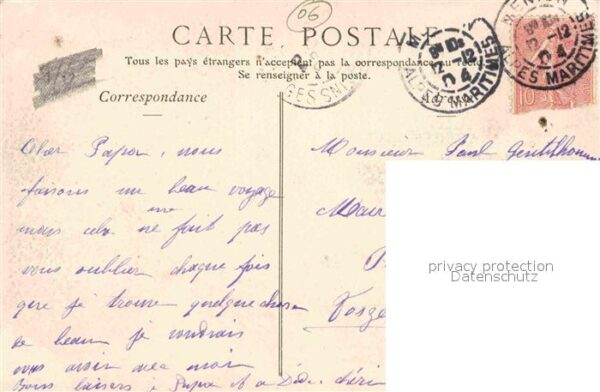 06
CARTE POSTALE
Tous les pays étrangers n'acceptent pas la correspondance au recto.
Se renseigner à la poste.
Correspondance
Adresse
MENTON
12-12
04
ALPES MARITIMES
MENTON
12-12
04
ALPES MARITIMES
10
Cher Papa, nous
faisons un beau voyage
mais cela me ne fait pas
vous oublier chaque fois
que je trouve quelque chose
de beau je voudrais
vous avoir avec moi
Bons baisers à Papa
chéri
Monsieur Paul Gentilhomme
Mair
Vosges
privacy protection
Datenschutz